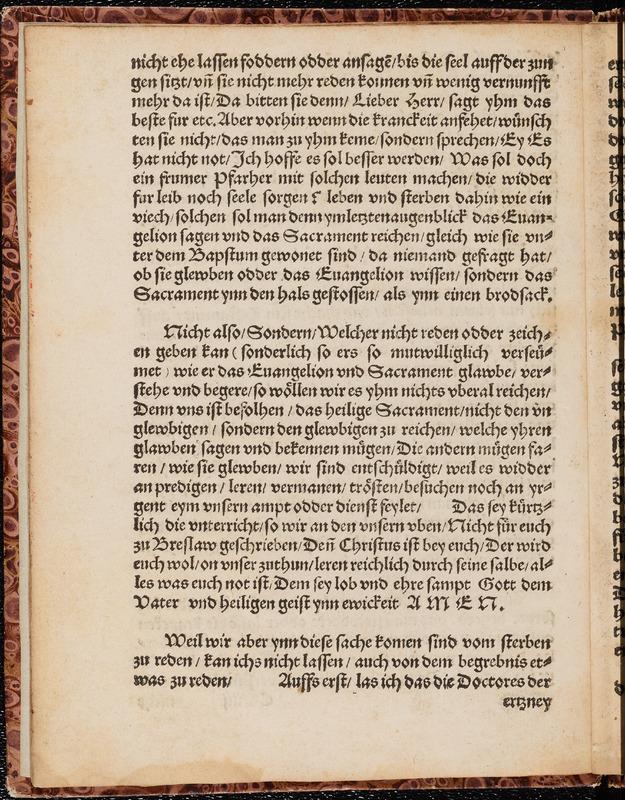 nicht ehe lassen foddern odder ansagē/bis die seel auff der zun
gen sitzt/vñ sie nicht mehr reden konnen vñ wenig vernunfft
mehr da ist/Da bitten sie denn/Lieber Herr/sagt yhm das
beste fur etc. Aber vorhin wenn die kranckeit anfehet/wünsch
ten sie nicht/das man zu yhm keme/sondern sprechen/Ey Es
hat nicht not/Jch hoffe es sol besser werden/ Was sol doch
ein frumer Pfarher mit solchen leuten machen/die widder
fur leib noch seele sorgen? leben vnd sterben dahin wie ein
viech/solchen sol man denn ymletztenaugenblick das Euan⸗
gelion sagen vnd das Sacrament reichen/gleich wie sie vn⸗
ter dem Bapstum gewonet sind/da niemand gefragt hat/
ob sie glewben odder das Euangelion wissen/sondern das
Sacrament ynn den hals gestossen/als ynn einen brodsack.
Nicht also/Sondern/Welcher nicht reden odder zeich⸗
en geben kan (sonderlich so ers so mutwilliglich verseü⸗
met) wie er das Euangelion vnd Sacrament glawbe/ver⸗
stehe vnd begere/so wöllen wir es yhm nichts vberal reichen/
Denn vns ist befolhen/das heilige Sacrament/nicht den vn
glewbigen/sondern den glewbigen zu reichen/welche yhren
glawben sagen vnd bekennen mügen/Die andern mügen fa⸗
ren/wie sie glewben/wir sind entschüldigt/weil es widder
an predigen/leren/vermanen/trösten/besuchen noch an yr⸗
gent eym vnsern ampt odder dienst feylet/ Das sey kürtz⸗
lich die vnterricht/so wir an den vnsern vben/Nicht für euch
zu Breslaw geschrieben/Deñ Christus ist bey euch/Der wird
euch wol/on vnser zuthun/leren reichlich durch seine salbe/al⸗
les was euch not ist/Dem sey lob vnd ehre sampt Gott dem
Vater vnd heiligen geist ynn ewickeit A M E N.
Weil wir aber ynn diese sache komen sind vom sterben
zu reden/kan ichs nicht lassen/auch von dem begrebnis et⸗
was zu reden/ Auffs erst/las ich das die Doctores der
ertzney